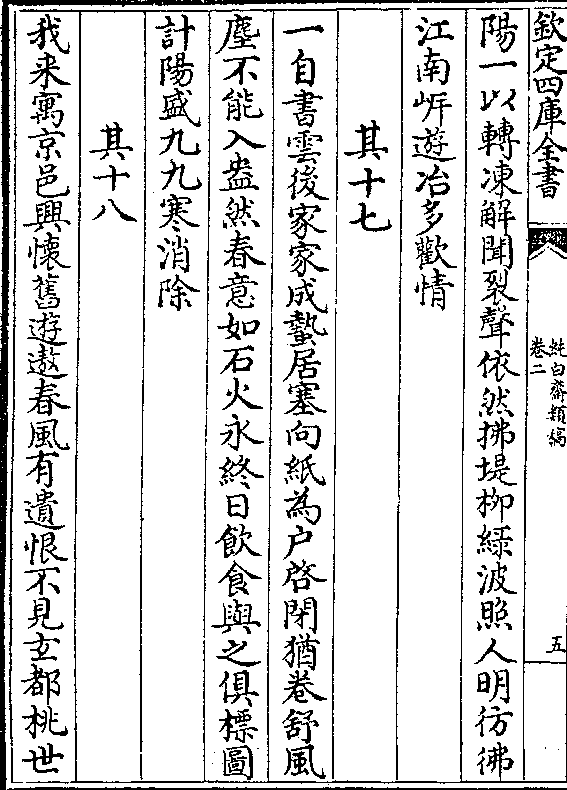 欽定四庫全書
純白齋類稿
卷二
五
陽一以轉凍解聞裂聲依然拂堤柳綠波照人明彷彿
江南岸遊冶多歡情
其十七
一自書雲後家家成蟄居塞向紙為户啓閉猶卷舒風
塵不能入盎然春意如石火永終日飲食與之俱標圖
計陽盛九九寒消除
其十八
我来寓京邑興懷舊遊遨春風有遺恨不見玄都桃世